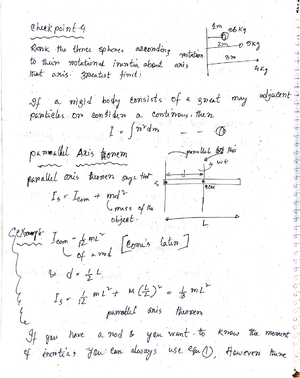 Check point 4
Rank the three spheres according
to their rotational inertia about
that axis. Greatest first:
rotation
axis
1m
36 kg
2m
9 kg
3m
4 kg
If a rigid body consists of a great may adjacent
particles or consider a continous. then
I = ∫r²dm — — ①
parallel Axis theorem
parallel axis theorem says that
Is = Icom + md²
mass of the
object.
parallel
d
com
L
Icom = 1/12 mL²
of a rod
& d = 1/2 L
Is = 1/12 mL² + M(L/2)² = 1/3 mL²
parallel axis theorem
If you have a rod & you want to know the moment
of inertia, you can always use eqn (1), However there